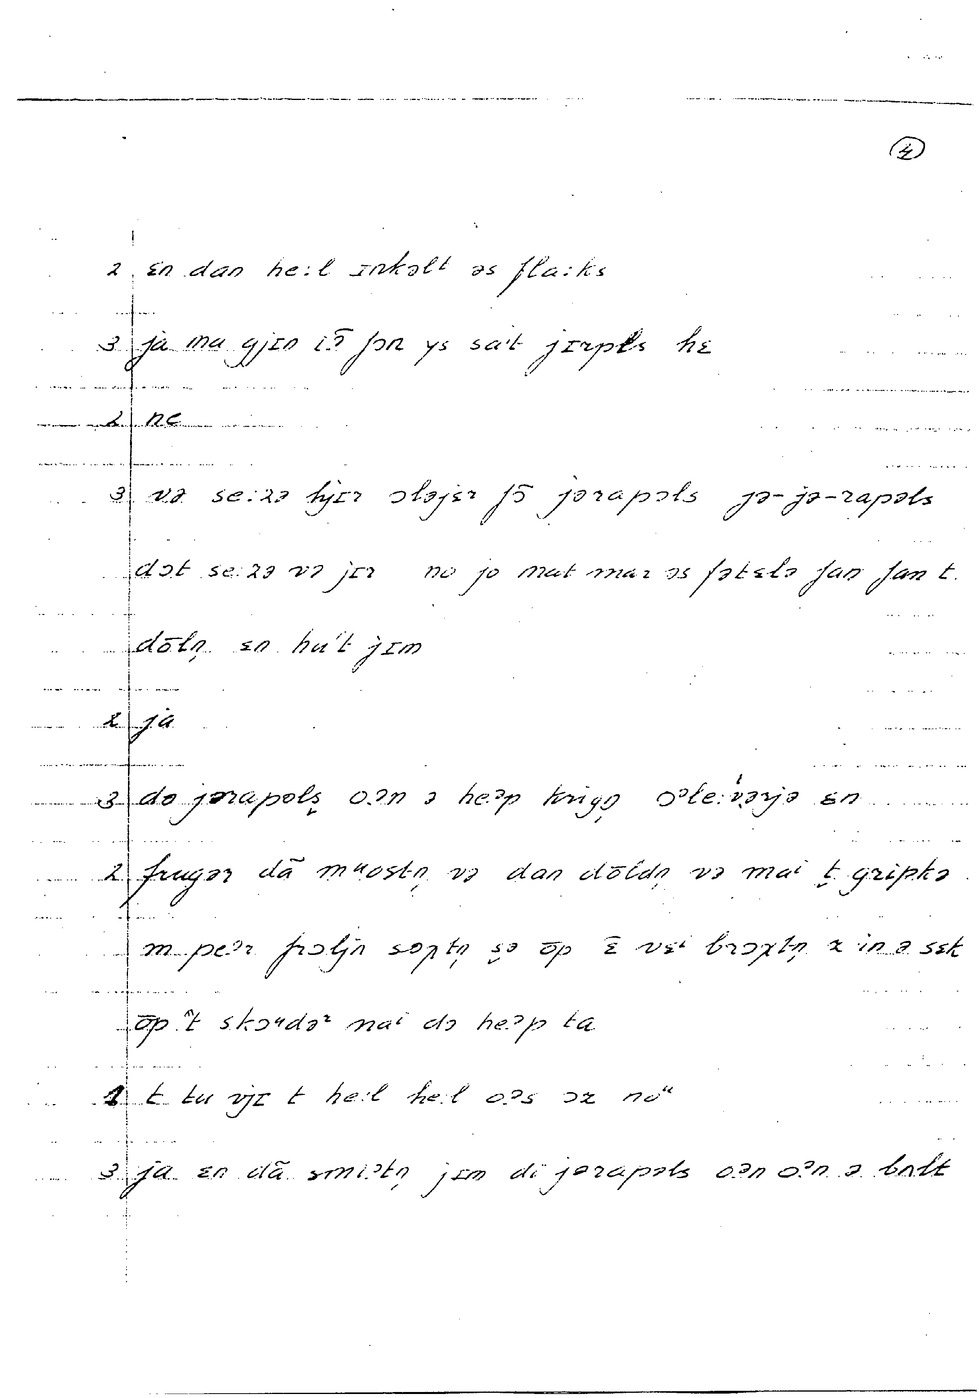 4
2 ɛn dan he:l ɪnkəlt əs fla:ks
3 ja ma gjɪn i.ə̃ fɔn ys sa't jɪrpls hɛ
2 ne
3 və se:zə hjɪr ɔləjɛr fɔ̄ jərapəls jə-jə-rapəls
dɔt se:zə və jɪr no jo mat mar əs fətɛlə fan fan t.
dōln̩ ɛn hu't jɪm
2 ja
3 do jərapəls̩ o.ən ə he.əp krign̩ oəle:vərjə ɛn
2 frugər dā mᵘostn̩ və dan dōldn̩ və mai t̬ gripkə
m pe.ər frɔljn sɔxtn̩ s̬ə ōp ɛ̄ vɛi brɔxtn̩ z in ə sɛk
ōp t skɔᵘdər nai də he.əp ta
1 t tu vjɪ t he:l he:l o.əs ɔz noᵘ
3 ja ɛn dā smi.ətn̩ jɪm di jərapəls oən o.ən ə bult